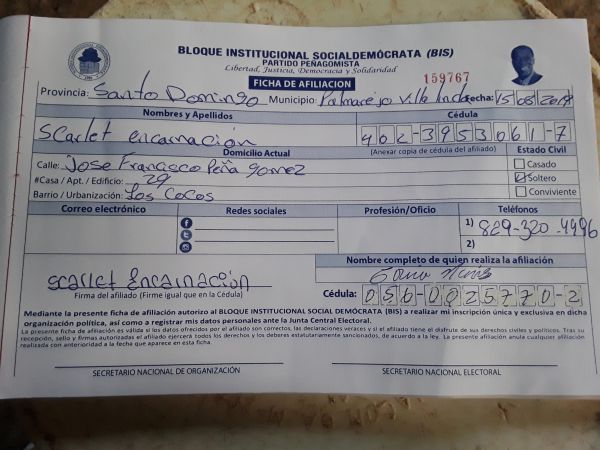 BLOQUE INSTITUCIONAL SOCIALDEMÓCRATA (BIS)
PARTIDO PEÑAGOMISTA
Libertad, Justicia, Democracia y Solidaridad
FICHA DE AFILIACION
159767
Provincia: Santo Domingo Municipio: Palmarejo Villa Linda Fecha: 15/08/2019
Nombres y Apellidos Cédula
Scarlet encarnación 402-3953061-7
Domicilio Actual (Anexar copia de cédula del afiliado) Estado Civil
Calle: Jose Francisco Peña gomez Casado
#Casa / Apt. / Edificio: 29 Soltero
Barrio / Urbanización: Los Cocos Conviviente
Correo electrónico Redes sociales Profesión/Oficio Teléfonos
1) 829-320-4996
2)
Nombre completo de quien realiza la afiliación
scarlet Encarnación
Firma del afiliado (Firme igual que en la Cédula) Cédula: 056-0025770-2
Mediante la presente ficha de afiliación autorizo al BLOQUE INSTITUCIONAL SOCIAL DEMÓCRATA (BIS) a realizar mi inscripción única y exclusiva en dicha
organización política, así como a registrar mis datos personales ante la Junta Central Electoral.
La presente ficha de afiliación es válida si los datos ofrecidos por el afiliado son correctos, las declaraciones veraces y si el afiliado tiene el disfrute de sus derechos civiles y políticos. Tras su
recepción, sello y firmas autorizadas el afiliado ejercerá todos los derechos y los deberes estatutariamente sancionados, de acuerdo a la ley. La presente afiliación anula cualquier afiliación
realizada con anterioridad a la fecha que aparece en esta ficha.
SECRETARIO NACIONAL DE ORGANIZACIÓN SECRETARIO NACIONAL ELECTORAL